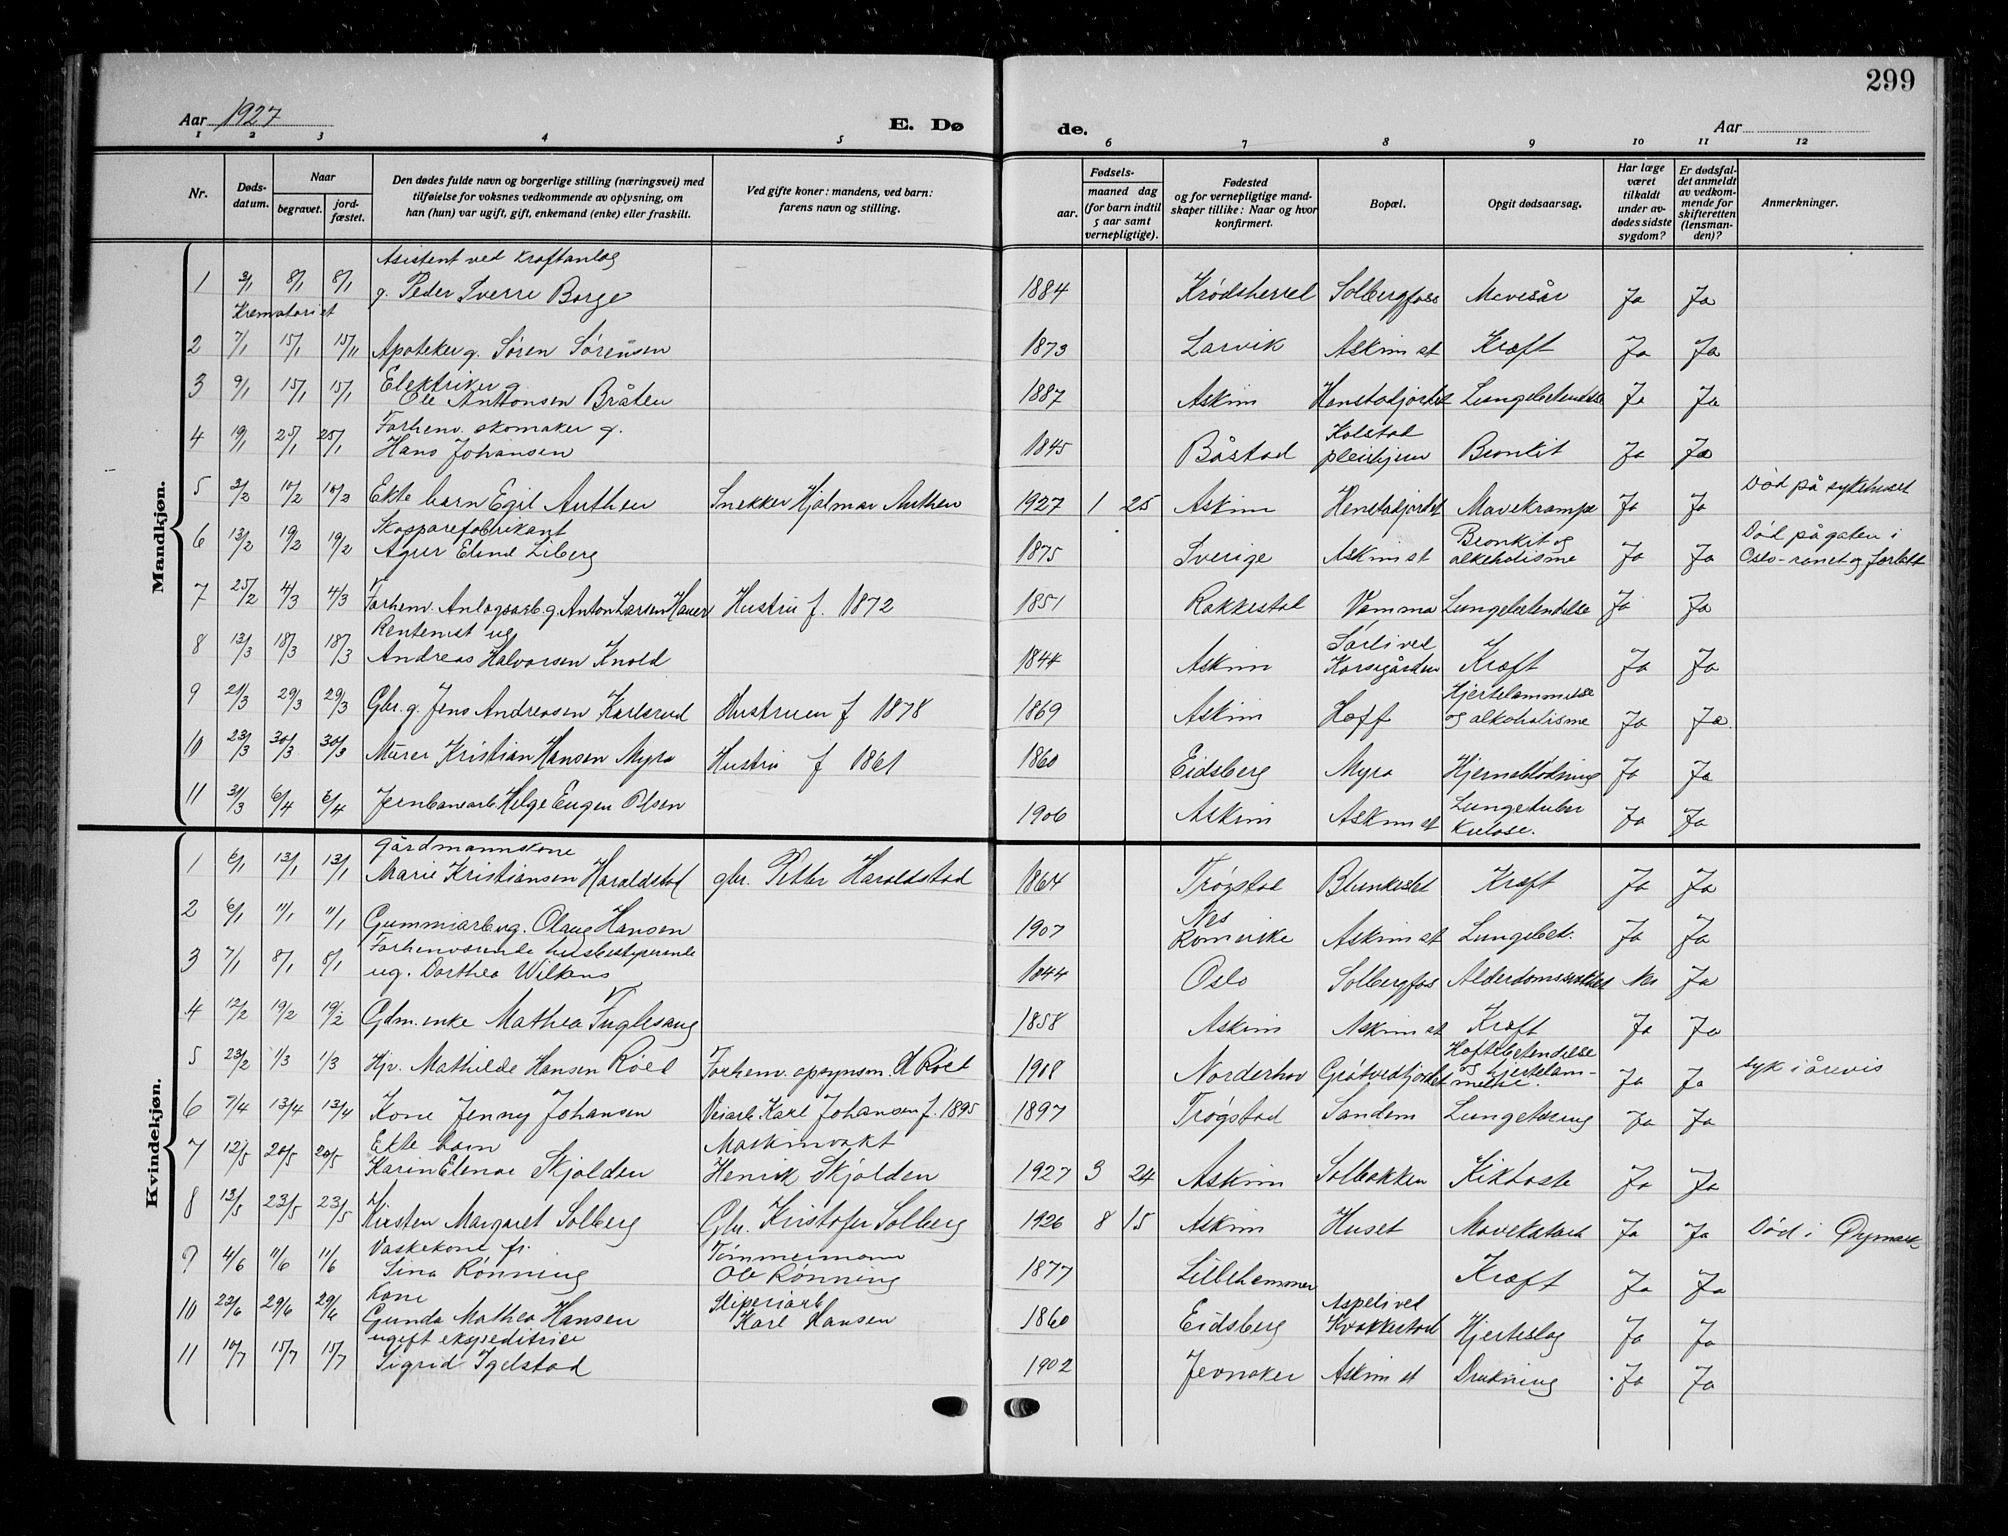 299
Aar 1927
E. Dø
de.
Aar
1 2 3 4 5 6 7 8 9 10 11 12
Nr.
Døds-datum.
Naar
begravet.
jord-fæstet.
Den dødes fulde navn og borgerlige stilling (næringsvei) med
tilføielse for voksnes vedkommende av oplysning, om
han (hun) var ugift, gift, enkemand (enke) eller fraskilt.
Ved gifte koner: mandens, ved barn:
farens navn og stilling.
Fødsels-
aar.
maaned dag
(for barn indtil
5 aar samt
vernepligtige).
Fødested
og for vernepligtige mand-
skaper tillike: Naar og hvor
konfirmert.
Bopæl.
Opgit dødsaarsag.
Har læge
været
tilkaldt
under av-
dødes sidste
sygdom?
Er dødsfal-
det anmeldt
av vedkom-
mende for
skifteretten
(lensman-
den)?
Anmerkninger.
Mandkjøn.
Asistent ved Kraftanlæg
1 3/1 8/1 8/1 g. Peder Sverre Borge 1884 Krødsherred Solbergfoss Mavesår Ja Ja
Krematoriet
2 7/1 15/1 15/11 Apoteker g. Søren Sørensen 1873 Larvik Askim st Kræft Ja Ja
Elektriker g.
3 9/1 15/1 15/1 Ole Anttonsen Bråten 1887 Askim Henstadjordet Lungebetendelse Ja Ja
Forhenv. skomaker g. Kolstad
4 19/1 25/1 25/1 Hans Johansen 1845 Båstad pleiehjem Bronkit Ja Ja
5 3/2 10/2 10/2 Ekte barn Egil Anthen Snekker Hjalmar Anthen 1927 1 25 Askim Henstadjordet Mavekrampe Ja Ja Død på sykehuset
Bronkit og Død på gaten i
6 13/2 19/2 19/2 Liberg 1875 Sverige Askim st alkoholisme Ja Ja Oslo-ranet og forlatt
7 25/2 4/3 4/3 Forhenv. Anlegsarb. g. Anton Larsen Haver Hustru f. 1872 1851 Rakkestad Vamma Lungebetendelse Ja Ja
Rentenist ug Sørli ved
8 13/3 18/3 18/3 Andreas Halvorsen Knold 1844 Askim Korsegården Kræft Ja Ja
Hjertelammelse
9 21/3 29/3 29/3 Gbr. g. Jens Andreasen Karlsrud Hustruen f 1878 1869 Askim Hoff og alkoholisme Ja Ja
10 23/3 30/3 30/3 Murer Kristian Hansen Myra Hustru f 1861 1860 Eidsberg Myra Hjerneblødning Ja Ja
11 31/3 6/4 6/4 Jernbanearb. Helge Eugen Olsen 1906 Askim Askim st Lungetuber
kulose. Ja Ja
Kvindekjøn.
Gårdmannskone
1 6/1 13/1 13/1 Marie Kristiansen Haraldstad gbr. Petter Haraldstad 1864 Trøgstad Kræft Ja Ja
Nes
2 6/1 11/1 11/1 Gummiarb. ug. Olaug Hansen 1907 Romerike Askim st Lungebet. Ja Ja
Forhenværende husbestyrerinde
3 7/1 8/1 8/1 ug. Dorthea Wilkens 1844 Oslo Solbergfos Nei Ja
4 12/2 19/2 19/2 Gdm. enke Mathea Fuglesang 1858 Askim Askim st Kræft Ja Ja
Hoftebetendelse
5 23/2 1/3 1/3 Hjv. Mathilde Hansen Røed Forhenv. opsynsm. Røed 1908 Norderhov Grøtvedtjordet og hjertelam-
melse. Ja Ja syk i årevis
6 7/4 13/4 13/4 Kone Jenny Johansen Veiarb. Karl Johansen f. 1895 1897 Trøgstad Sandem Lungetæring Ja Ja
Ekte barn Maskinvakt
7 12/5 20/5 20/5 Karin Elenor Skjolden Henrik Skjolden 1927 3 24 Askim Solbakken Kikhoste Ja Ja
8 13/5 23/5 23/5 Kirsten Margaret Solberg Gbr. Kristofer Solberg 1926 8 15 Askim Huset Mavekatarr Ja Ja Død i Øymark
Vaskekone fr. Tømmermann
9 4/6 11/6 11/6 Sina Rønning Ole Rønning 1877 Lillehammer Kræft Ja Ja
Kone Sliperiarb Aspeli ved
10 23/6 29/6 29/6 Gunda Mathea Hansen Karl Hansen 1860 Eidsberg Kvakkestad Hjerteslag Ja Ja
ugift ekspeditrice
11 10/7 15/7 15/7 Sigrid Igelstad 1902 Jevnaker Askim st Drukning Ja Ja